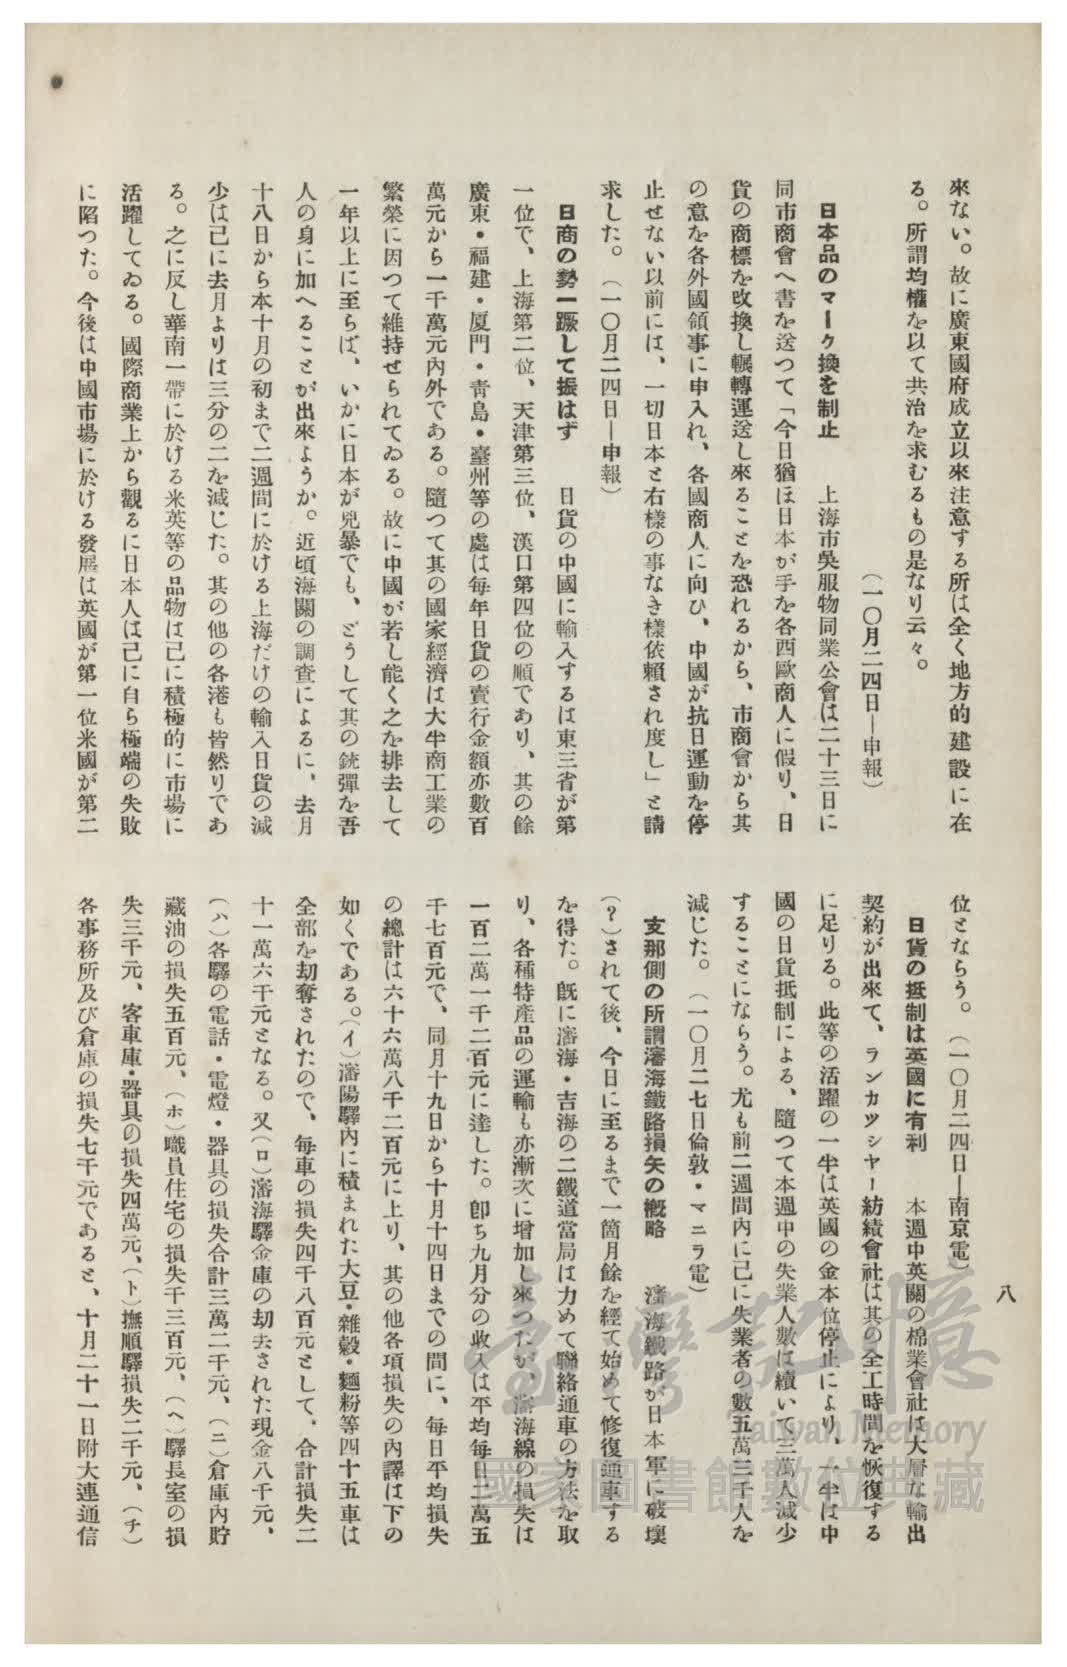 來ない。故に廣東國府成立以來注意する所は全く地方的建設に在
る。所謂均權を以て共治を求むるもの是なり云々。
（一〇月二四日―申報）
日本品のマーク換を制止　上海市吳服物同業公會は二十三日に
同市商會へ書を送つて「今日猶ほ日本が手を各西歐商人に假り、日
貨の商標を改換し輾轉運送し來ることを恐れるから、市商會から其
の意を各外國領事に申入れ、各國商人に向ひ、中國が抗日運動を停
止せない以前には、一切日本と右樣の事なき樣依賴され度し」と請
求した。（一〇月二四日―申報）
日商の勢一蹶して振はず　日貨の中國に輸入するは東三省が第
一位で、上海第二位、天津第三位、漢口第四位の順であり、其の餘
廣東・福建・厦門・青島・臺州等の處は每年日貨の賣行金額亦數百
萬元から一千萬元內外である。隨つて其の國家經濟は大半商工業の
繁榮に因つて維持せられてゐる。故に中國が若し能く之を排去して
一年以上に至らば、いかに日本が兇暴でも、どうして其の銃彈を吾
人の身に加へることが出來ようか。近頃海關の調査によるに、去月
十八日から本十月の初まで二週間に於ける上海だけの輸入日貨の減
少は己に去月よりは三分の二を減じた。其の他の各港も皆然りであ
る。之に反し華南一帶に於ける米英等の品物は己に積極的に市場に
活躍してゐる。國際商業上から觀るに日本人は己に自ら極端の失敗
に陷つた。今後は中國市場に於ける發展は英國が第一位米國が第二
位とならう。（一〇月二四日―南京電）
日貨の抵制は英國に有利　本週中英關の棉業會社は大層な輸出
契約が出來て、ランカツシヤー紡績會社は其の全工時間を恢復する
に足りる。此等の活躍の一半は英國の金本位停止により、一半は中
國の日貨抵制による、隨つて本週中の失業人數は續いて三萬人減少
することにならう。尤も前二週間內に己に失業者の數五萬三千人を
減じた。（一〇月二七日倫敦・マニラ電）
支那側の所謂瀋海鐵路損失の槪略　瀋海鐵路が日本軍に破壞
（？）されて後、今日に至るまで一箇月餘を經て始めて修復通車する
を得た。旣に瀋海・吉海の二鐵道當局は力めて聯絡通車の方法を取
り、各種特產品の運輸も亦漸次に增加し來つたが、瀋海線の損失は
一百二萬一千二百元に達した。卽ち九月分の收入は平均每日二萬五
千七百元で、同月十九日から十月十四日までの間に、每日平均損失
の總計は六十六萬八千二百元に上り、其の他各項損失の內譯は下の
如くである。（イ）瀋陽驛內に積まれた大豆・雜穀・麵粉等四十五車は
全部を刧奪されたので、每車の損失四千八百元として、合計損失二
十一萬六千元となる。又（ロ）瀋海驛金庫の刧去された現金八千元、
（ハ）各驛の電話・電燈・器具の損失合計三萬二千元、（ニ）倉庫內貯
藏油の損失五百元、（ホ）職員住宅の損失千三百元、（ヘ）驛長室の損
失三千元、客車庫・器具の損失四萬元、（ト）撫順驛損失二千元、（チ）
各事務所及び倉庫の損失七千元であると、十月二十一日附大連通信
八
臺灣記憶
Taiwan Memory
國家圖書館數位典藏